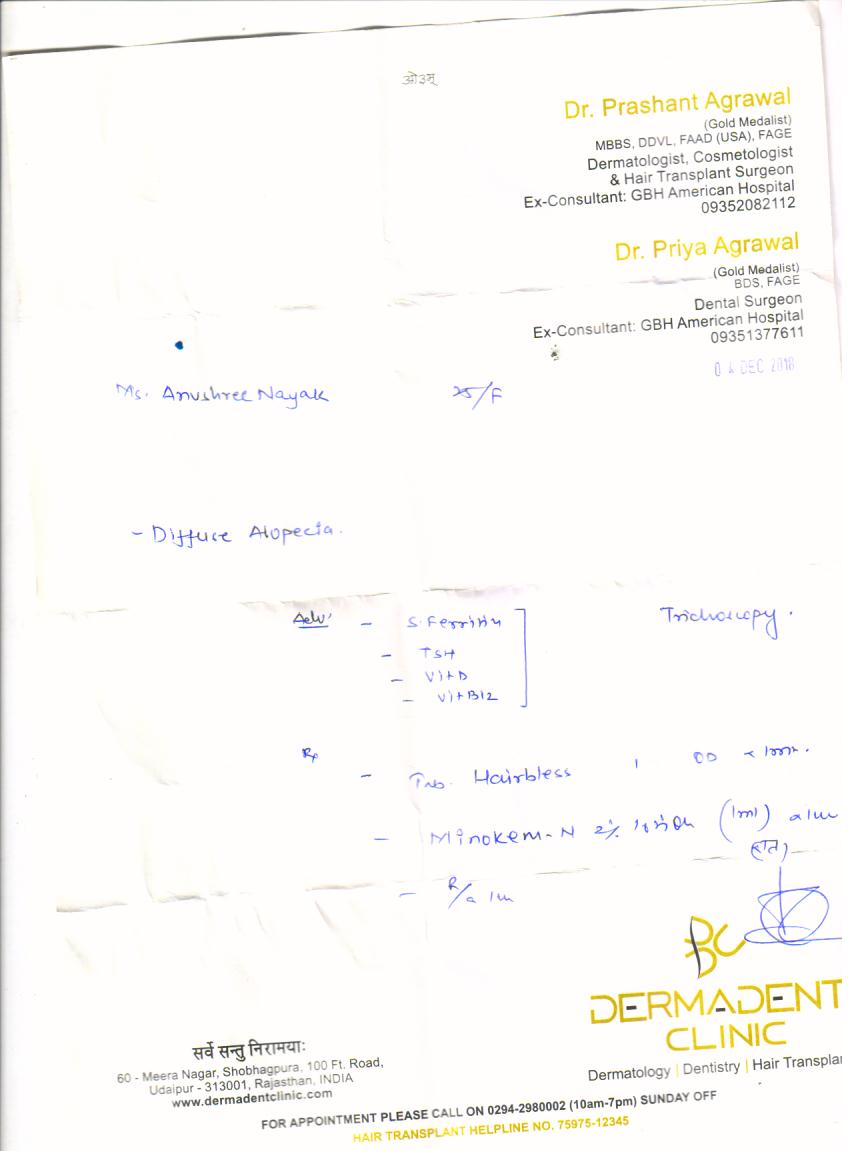 ओ३म्
Dr. Prashant Agrawal
(Gold Medalist)
MBBS, DDVL, FAAD (USA), FAGE
Dermatologist, Cosmetologist
& Hair Transplant Surgeon
Ex-Consultant: GBH American Hospital
09352082112
Dr. Priya Agrawal
(Gold Medalist)
BDS, FAGE
Dental Surgeon
Ex-Consultant: GBH American Hospital
09351377611
04 DEC 2018
Ms. Anushree Nayak 25/F
- Diffuse Alopecia.
Adv - S. Ferritin Trichoscopy.
- TSH
- Vit D
- Vit B12
Rx
- Tab. Hairbless 1 OD
- Minokem-N 2% (1ml)
- R/a 1m
BC
DERMADENT
CLINIC
Dermatology | Dentistry | Hair Transplan
सर्वे सन्तु निरामयाः
60 - Meera Nagar, Shobhagpura, 100 Ft. Road,
Udaipur - 313001, Rajasthan, INDIA
www.dermadentclinic.com
FOR APPOINTMENT PLEASE CALL ON 0294-2980002 (10am-7pm) SUNDAY OFF
HAIR TRANSPLANT HELPLINE NO. 75975-12345